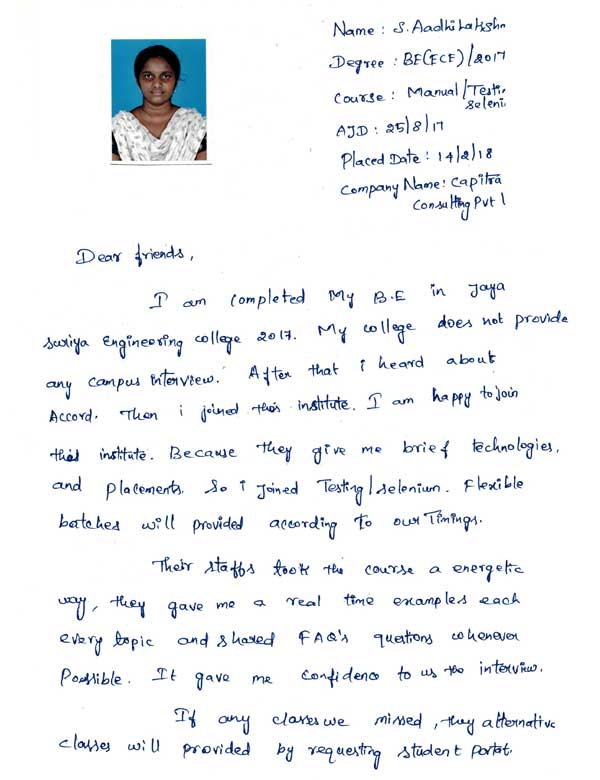 Name : S. Aadhilakshm
Degree : BE(ECE)/2017
Course : Manual/Testin
Seleni
AJD : 25/8/17
Placed Date : 14/2/18
Company Name: Capitra
Consulting Pvt l
Dear friends,
I am completed My B.E in Jaya
Suriya Engineering college 2017. My college does not provide
any campus interview. After that i heard about
Accord. Then i joined this institute. I am happy to join
this institute. Because they give me brief technologies,
and Placements. So i joined Testing/selenium. Flexible
batches will provided according to our Timings.
Their staffs took the course a energetic
way, they gave me a real time examples each
every topic and shared FAQ's questions whenever
Possible. It gave me confidence to us the interview.
If any classes we missed, they alternative
classes will provided by requesting student portal.